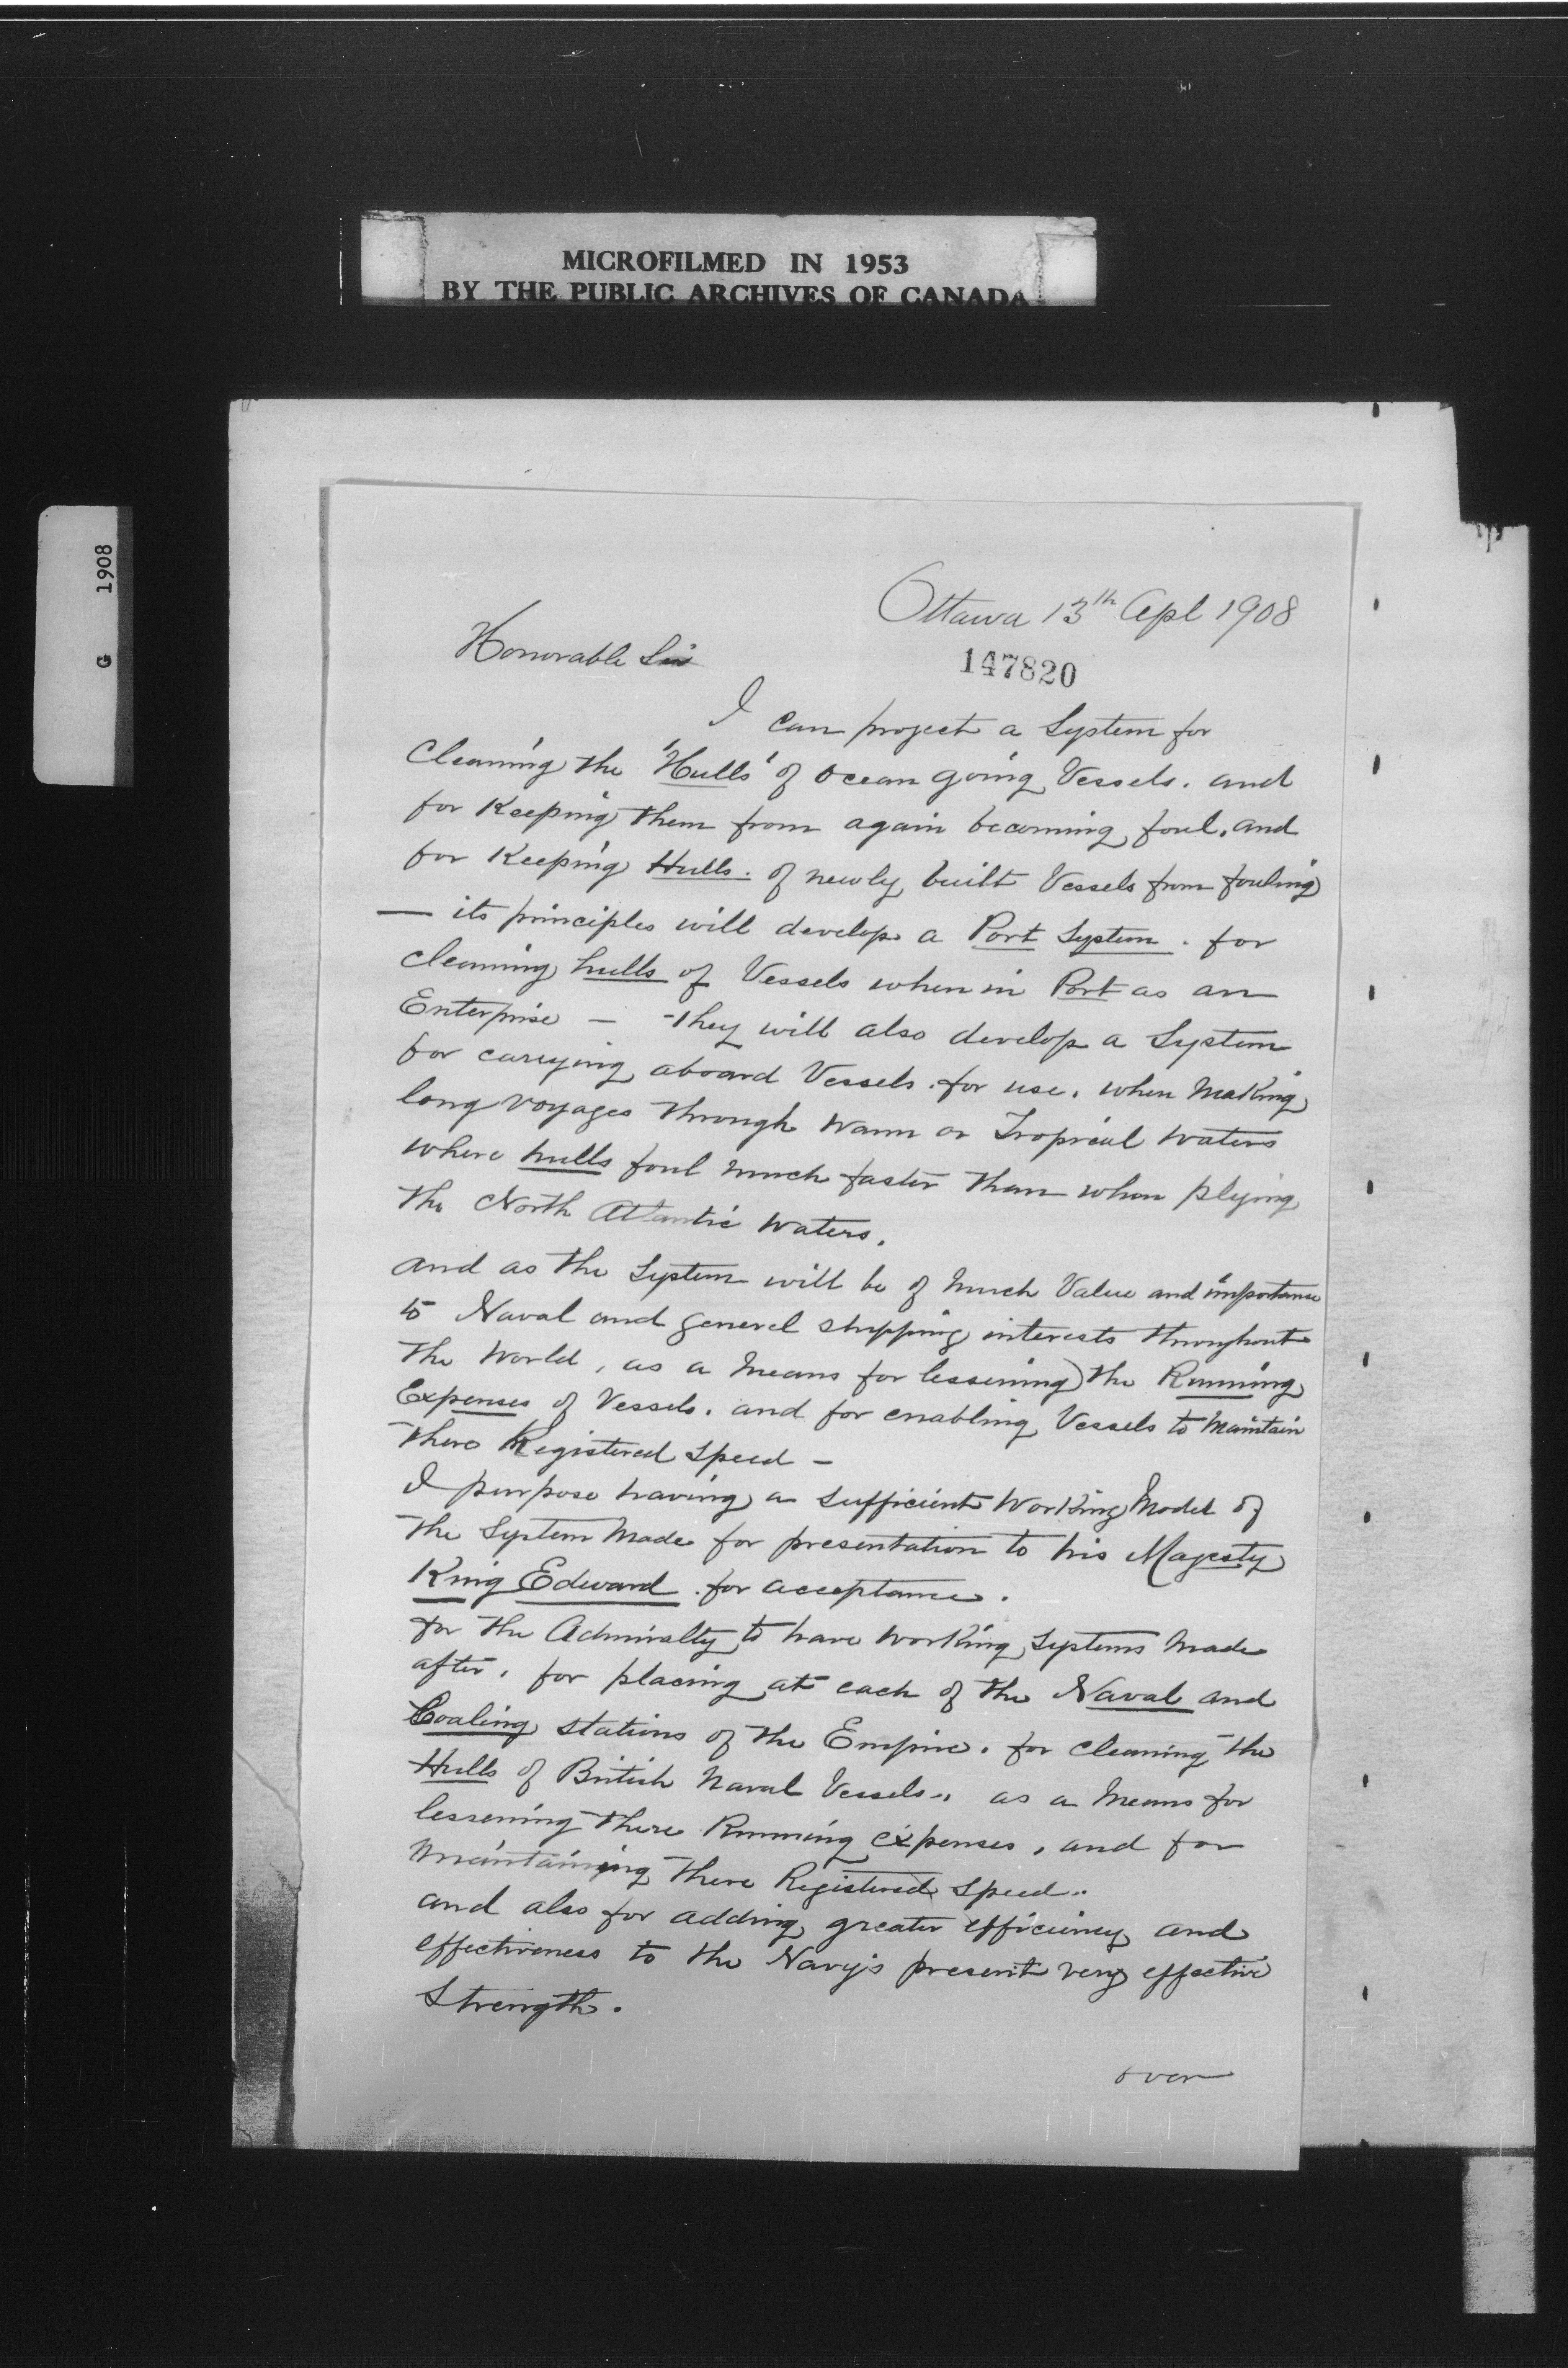 MICROFILMED IN 1953
BY THE PUBLIC ARCHIVES OF CANADA
G 1908
Ottawa 13th Apl 1908
Honorable Sir
147820
I can project a System for
Cleaning the 'Hulls' of Ocean going Vessels. and
for Keeping them from again becoming foul, and
for Keeping Hulls. of newly built Vessels from fouling
— its principles will develop a Port System. for
cleaning hulls of Vessels when in Port as an
Enterprise — They will also develop a System
for carrying aboard Vessels. for use. when Making
long voyages through warm or Tropical waters
where hulls foul much faster than when plying
the North Atlantic waters.
and as the System will be of Much Value and importance
to Naval and general shipping interests throughout
the World, as a Means for lessening the Running
Expenses of Vessels. and for enabling Vessels to Maintain
there Registered Speed —
I purpose having a sufficient Working Model of
the System Made for presentation to his Majesty
King Edward. for acceptance.
for the Admiralty to have working Systems Made
after, for placing at each of the Naval and
Coaling stations of the Empire. for cleaning the
Hulls of British Naval Vessels, as a Means for
lessening there Running expenses, and for
Maintaining there Registered Speed.
and also for adding greater efficiency and
effectiveness to the Navy's present very effective
Strength.
over